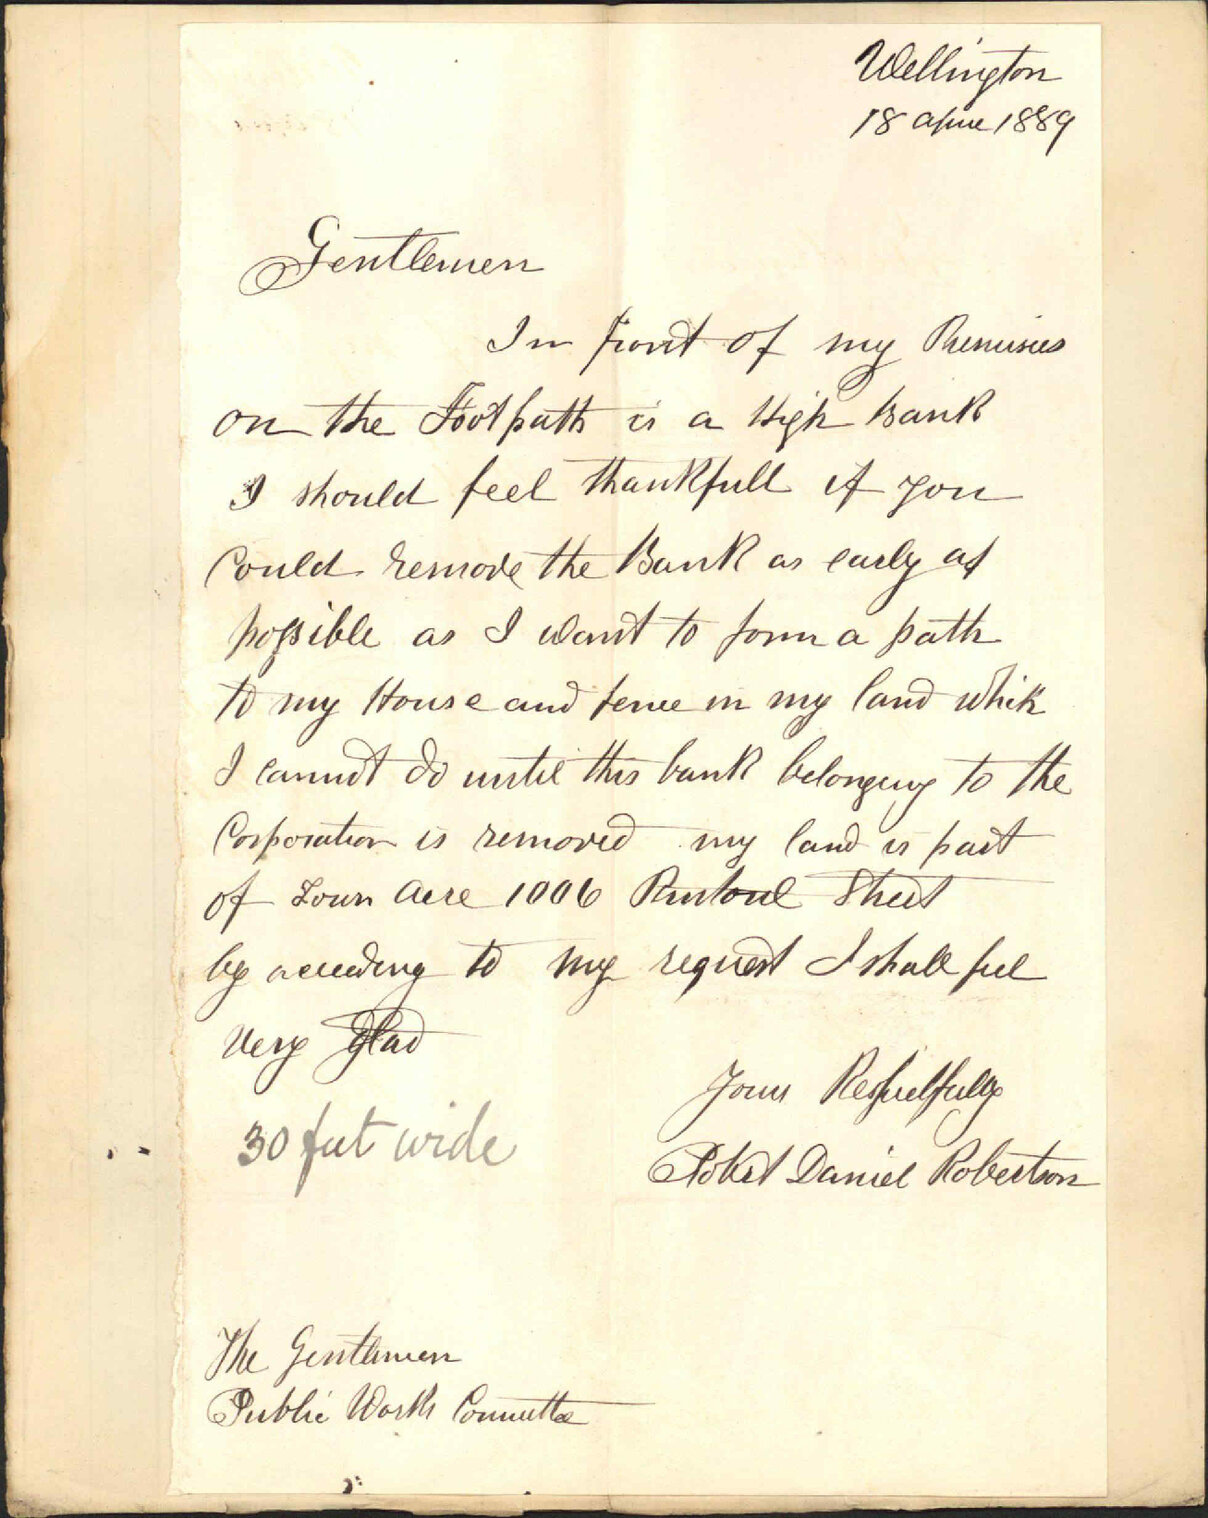 Wellington
18 April 1889
Gentlemen
In front of my Premises
on the Footpath is a High Bank
I should feel thankfull if you
Could remove the Bank as early as
possible as I want to form a path
to my House and fence in my land which
I cannot do until this bank belonging to the
Corporation is removed my land is part
of Town Acre 1006 Rintoul Street
by acceeding to my request I shall feel
very Glad
Yours Respectfully
30 feet wide
Robert Daniel Robertson
The Gentlemen
Public Works Committee